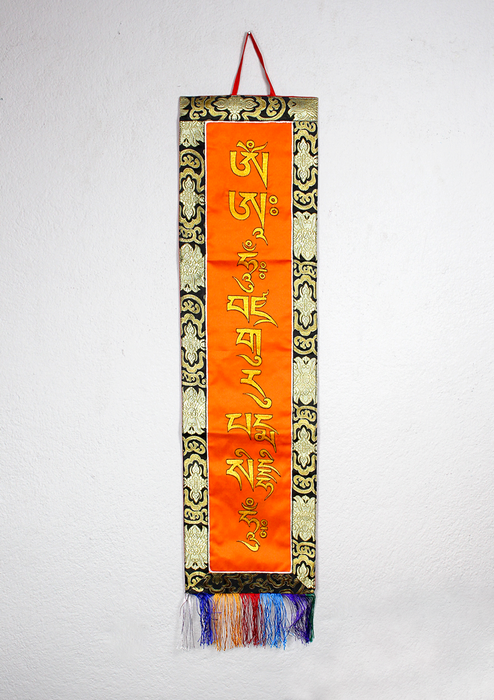 ཨོཾ
ཨཱཿ
ཧཱུྃ
བཛྲ
གུ
རུ
པདྨ
སིདྡྷི
ཧཱུྃ